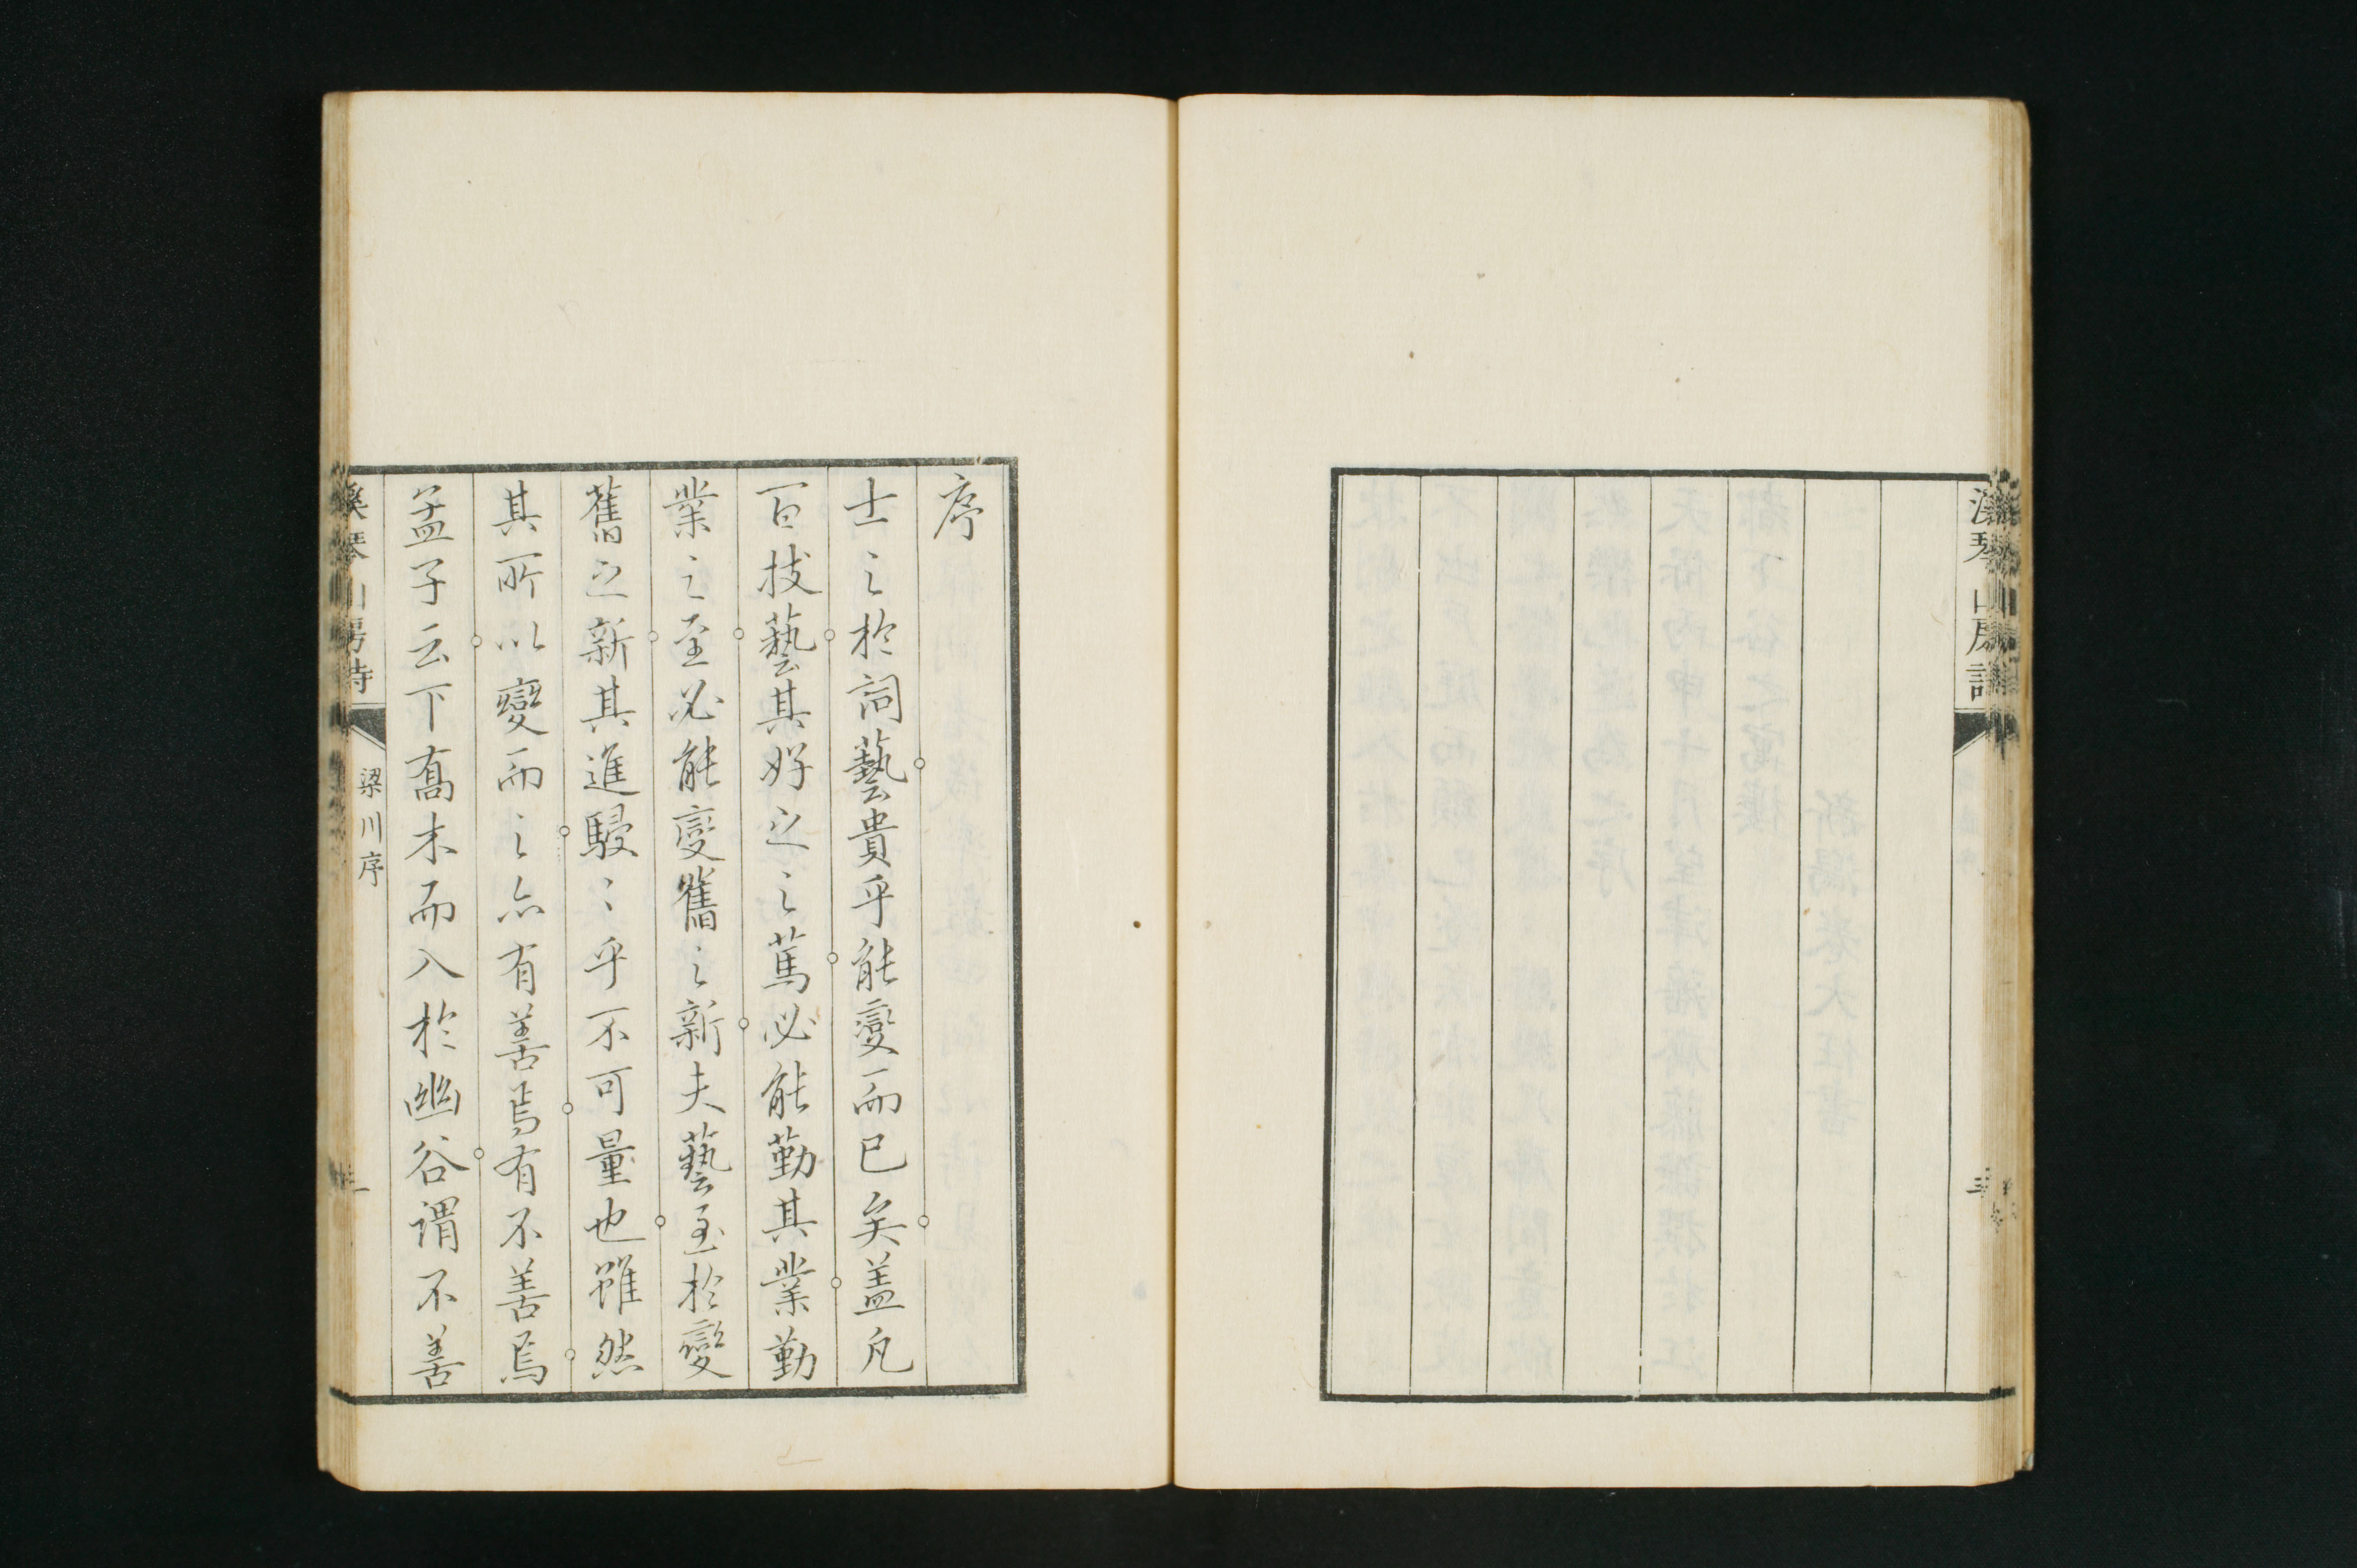 琴山房詩
三
序
士之於詞藝貴乎能變而已矣盖凡
百技藝其好之之篤必能勤其業勤
業之至必能變舊之新夫藝至於變
舊之新其進駸〻乎不可量也雖然
其所以變而之亦有善焉有不善焉
孟子云下喬木而入於幽谷謂不善
琴山房詩
梁川序
一